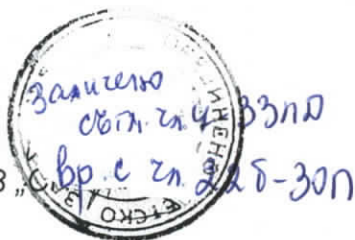 заличено
съгл. чл. 4 ЗЗЛД
Вр. с чл. 22б-ЗОП